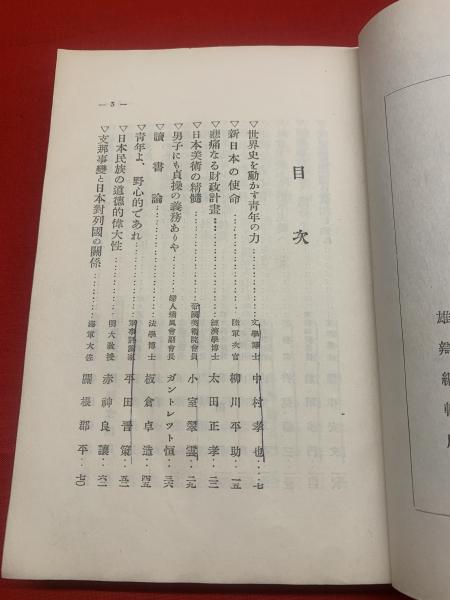 目次
▽世界史を動かす青年の力……文學博士 中村孝也‥七
▽新日本の使命……陸軍次官 柳川平助‥一五
▽悲痛なる財政計畫……經濟學博士 太田正孝‥二二
▽日本美術の精髓……帝國美術院會員 小室翠雲‥二九
▽男子にも貞操の義務ありや……婦人矯風會副會長 ガントレット恒‥三六
▽讀書論……法學博士 板倉卓造‥四五
▽青年よ、野心的であれ……軍事評論家 平田晋策‥五一
▽日本民族の道德的偉大性……明大教授 赤神良讓‥六一
▽支那事變と日本對列國の關係……海軍大佐 關根郡平‥七〇
— 3 —
雄辯